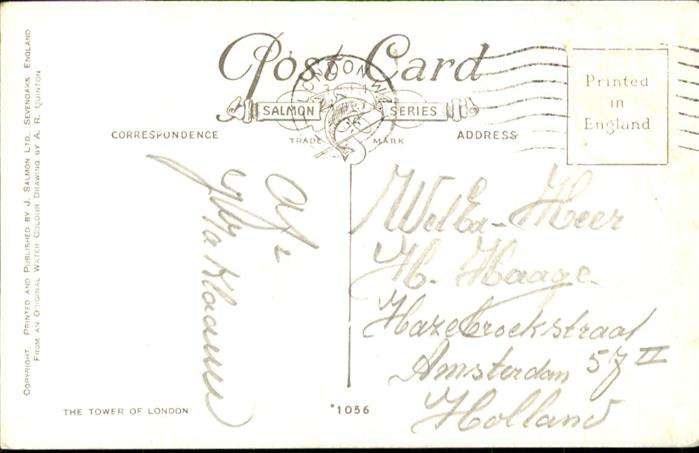 Post Card
SALMON SERIES
TRADE MARK
CORRESPONDENCE
ADDRESS
Printed
in
England
LONDON W.1
COPYRIGHT. PRINTED AND PUBLISHED BY J. SALMON LTD., SEVENOAKS, ENGLAND
FROM AN ORIGINAL WATER COLOUR DRAWING BY A. R. QUINTON
H. Haage.
Hazebroekstraat
Amsterdam 57 II
Holland
THE TOWER OF LONDON
*1056